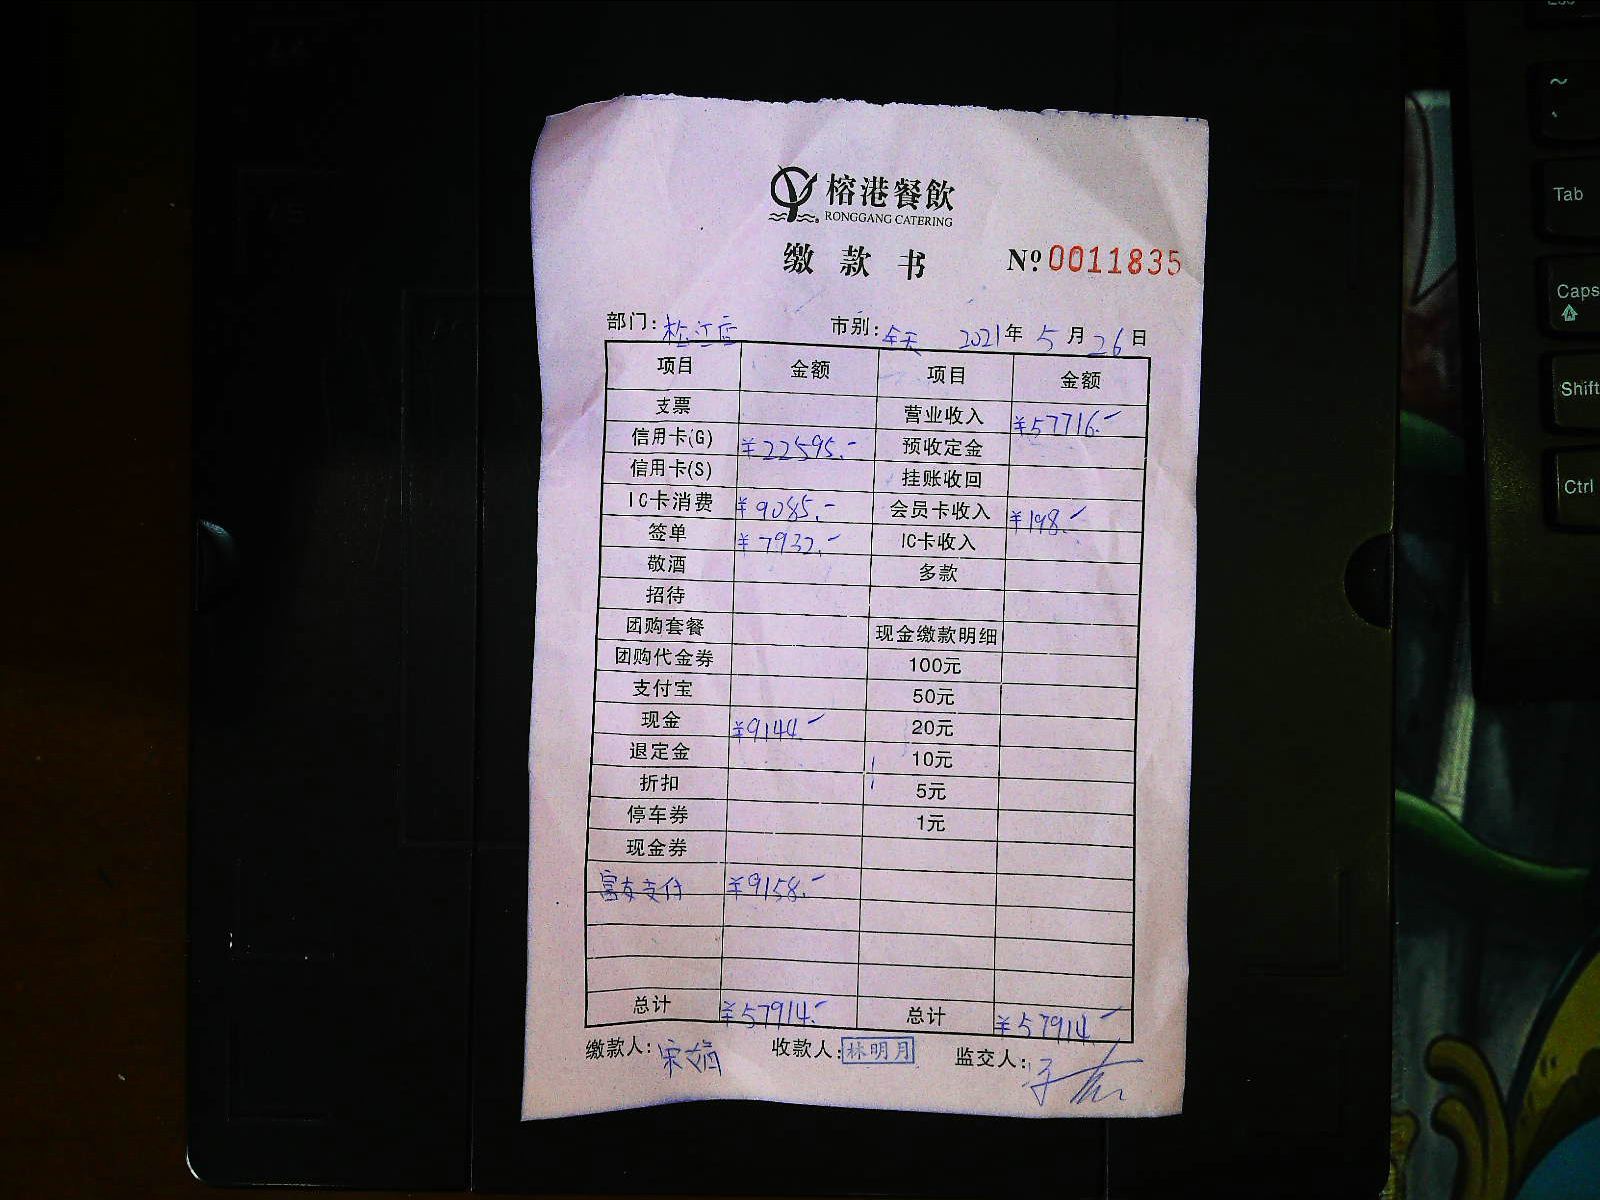 榕港餐飲
RONGGANG CATERING
缴款书 Nº 0011835
部门: 松江店 市别: 全天 2021年 5月 26日
项目 金额 项目 金额
支票 营业收入 ¥57716.-
信用卡(G) ¥22595.- 预收定金
信用卡(S) 挂账收回
IC卡消费 ¥9085.- 会员卡收入 ¥198.-
签单 ¥7932.- IC卡收入
敬酒 多款
招待
团购套餐 现金缴款明细
团购代金券 100元
支付宝 50元
现金 ¥9144.- 20元
退定金 10元
折扣 5元
停车券 1元
现金券
富友支付 ¥9158.-
总计 ¥57914.- 总计 ¥57914.-
缴款人: 收款人: 林明月 监交人:
~
Tab
Caps
Shift
Ctrl